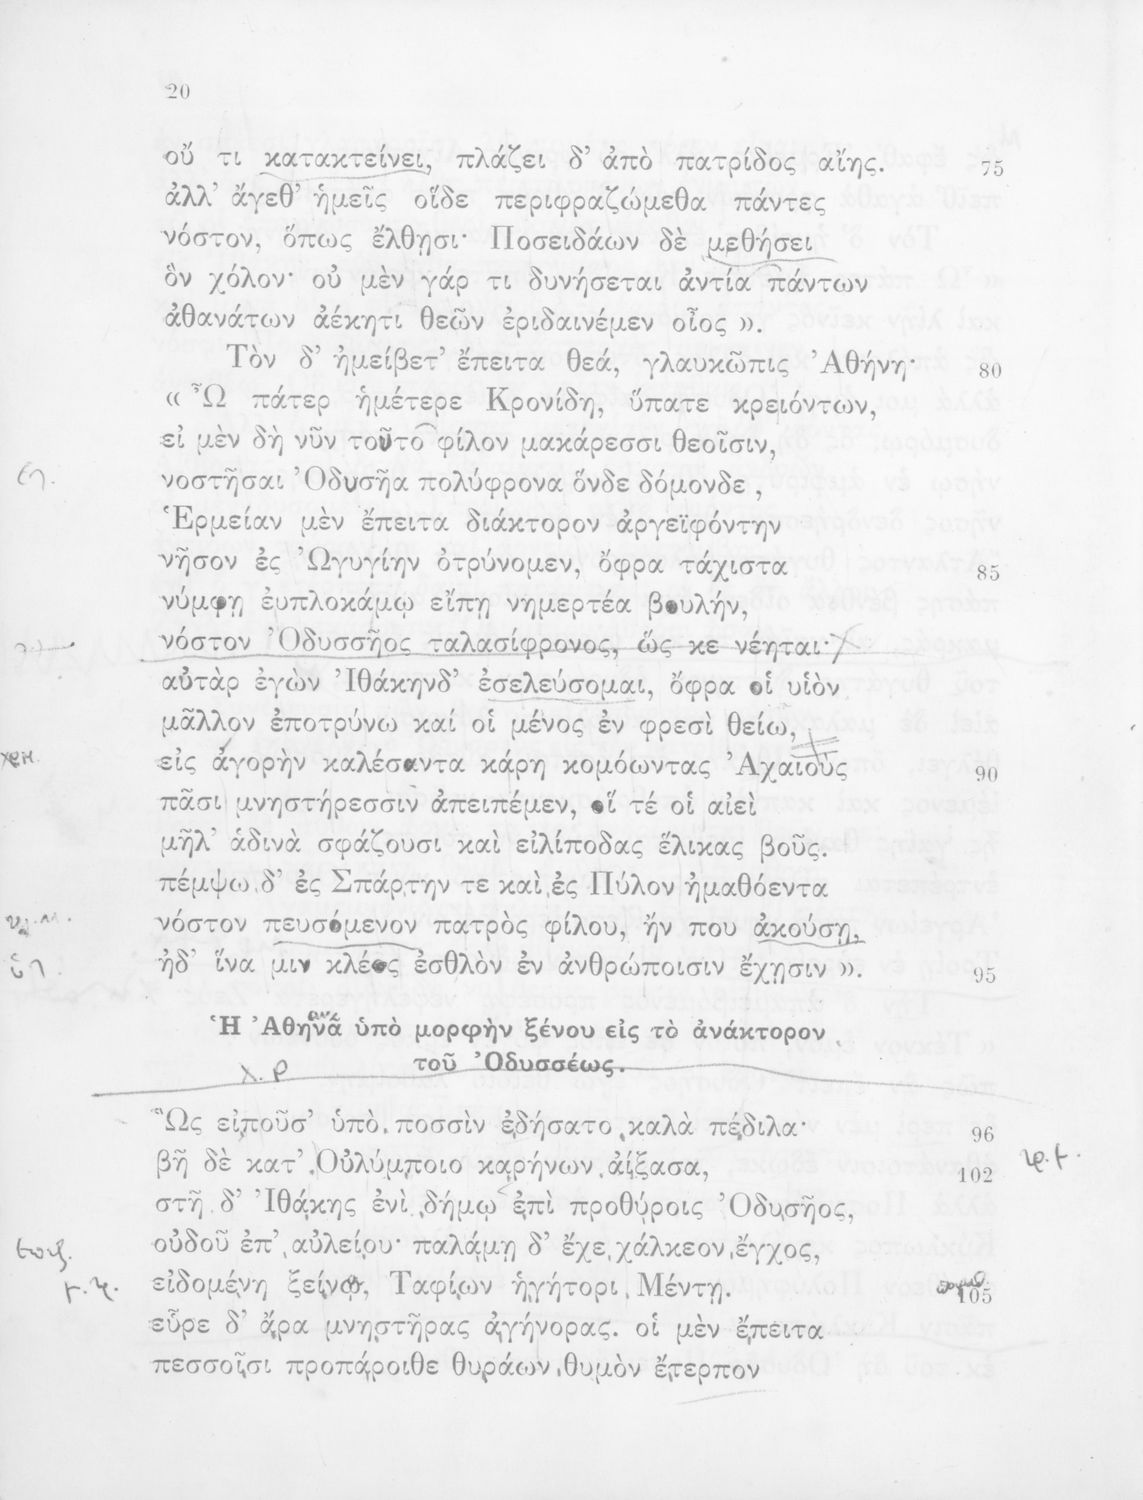 20
οὔ τι κατακτείνει, πλάζει δ’ ἀπὸ πατρίδος αἴης. 75
ἀλλ’ ἄγεθ’ ἡμεῖς οἵδε περιφραζώμεθα πάντες
νόστον, ὅπως ἔλθῃσι· Ποσειδάων δὲ μεθήσει
ὃν χόλον· οὐ μὲν γάρ τι δυνήσεται ἀντία πάντων
ἀθανάτων ἀέκητι θεῶν ἐριδαινέμεν οἶος ».
Τὸν δ’ ἠμείβετ’ ἔπειτα θεά, γλαυκῶπις ’Αθήνη· 80
« Ὦ πάτερ ἡμέτερε Κρονίδη, ὕπατε κρειόντων,
εἰ μὲν δὴ νῦν τοῦτο φίλον μακάρεσσι θεοῖσιν,
νοστῆσαι ’Οδυσῆα πολύφρονα ὅνδε δόμονδε,
Ἑρμείαν μὲν ἔπειτα διάκτορον ἀργεϊφόντην
νῆσον ἐς ’Ωγυγίην ὀτρύνομεν, ὄφρα τάχιστα 85
νύμφῃ ἐυπλοκάμῳ εἴπῃ νημερτέα βουλήν,
νόστον ’Οδυσσῆος ταλασίφρονος, ὥς κε νέηται·
αὐτὰρ ἐγὼν ’Ιθάκηνδ’ ἐσελεύσομαι, ὄφρα οἱ υἱὸν
μᾶλλον ἐποτρύνω καί οἱ μένος ἐν φρεσὶ θείω,
εἰς ἀγορὴν καλέσαντα κάρη κομόωντας ’Αχαιοὺς 90
πᾶσι μνηστήρεσσιν ἀπειπέμεν, οἵ τέ οἱ αἰεὶ
μῆλ’ ἁδινὰ σφάζουσι καὶ εἰλίποδας ἕλικας βοῦς.
πέμψω δ’ ἐς Σπάρτην τε καὶ ἐς Πύλον ἠμαθόεντα
νόστον πευσόμενον πατρὸς φίλου, ἤν που ἀκούσῃ,
ἠδ’ ἵνα μιν κλέος ἐσθλὸν ἐν ἀνθρώποισιν ἔχῃσιν ». 95
Ἡ ’Αθηνᾶ ὑπὸ μορφὴν ξένου εἰς τὸ ἀνάκτορον
τοῦ ’Οδυσσέως.
χ. ρ
Ὣς εἰποῦσ’ ὑπὸ ποσσὶν ἐδήσατο καλὰ πέδιλα· 96
βῆ δὲ κατ’ Οὐλύμποιο καρήνων ἀίξασα, 102
στῆ δ’ ’Ιθάκης ἐνὶ δήμῳ ἐπὶ προθύροις ’Οδυσῆος,
οὐδοῦ ἐπ’ αὐλείου· παλάμῃ δ’ ἔχε χάλκεον ἔγχος,
εἰδομένη ξείνῳ, Ταφίων ἡγήτορι Μέντῃ. 105
εὗρε δ’ ἄρα μνηστῆρας ἀγήνορας. οἱ μὲν ἔπειτα
πεσσοῖσι προπάροιθε θυράων θυμὸν ἔτερπον